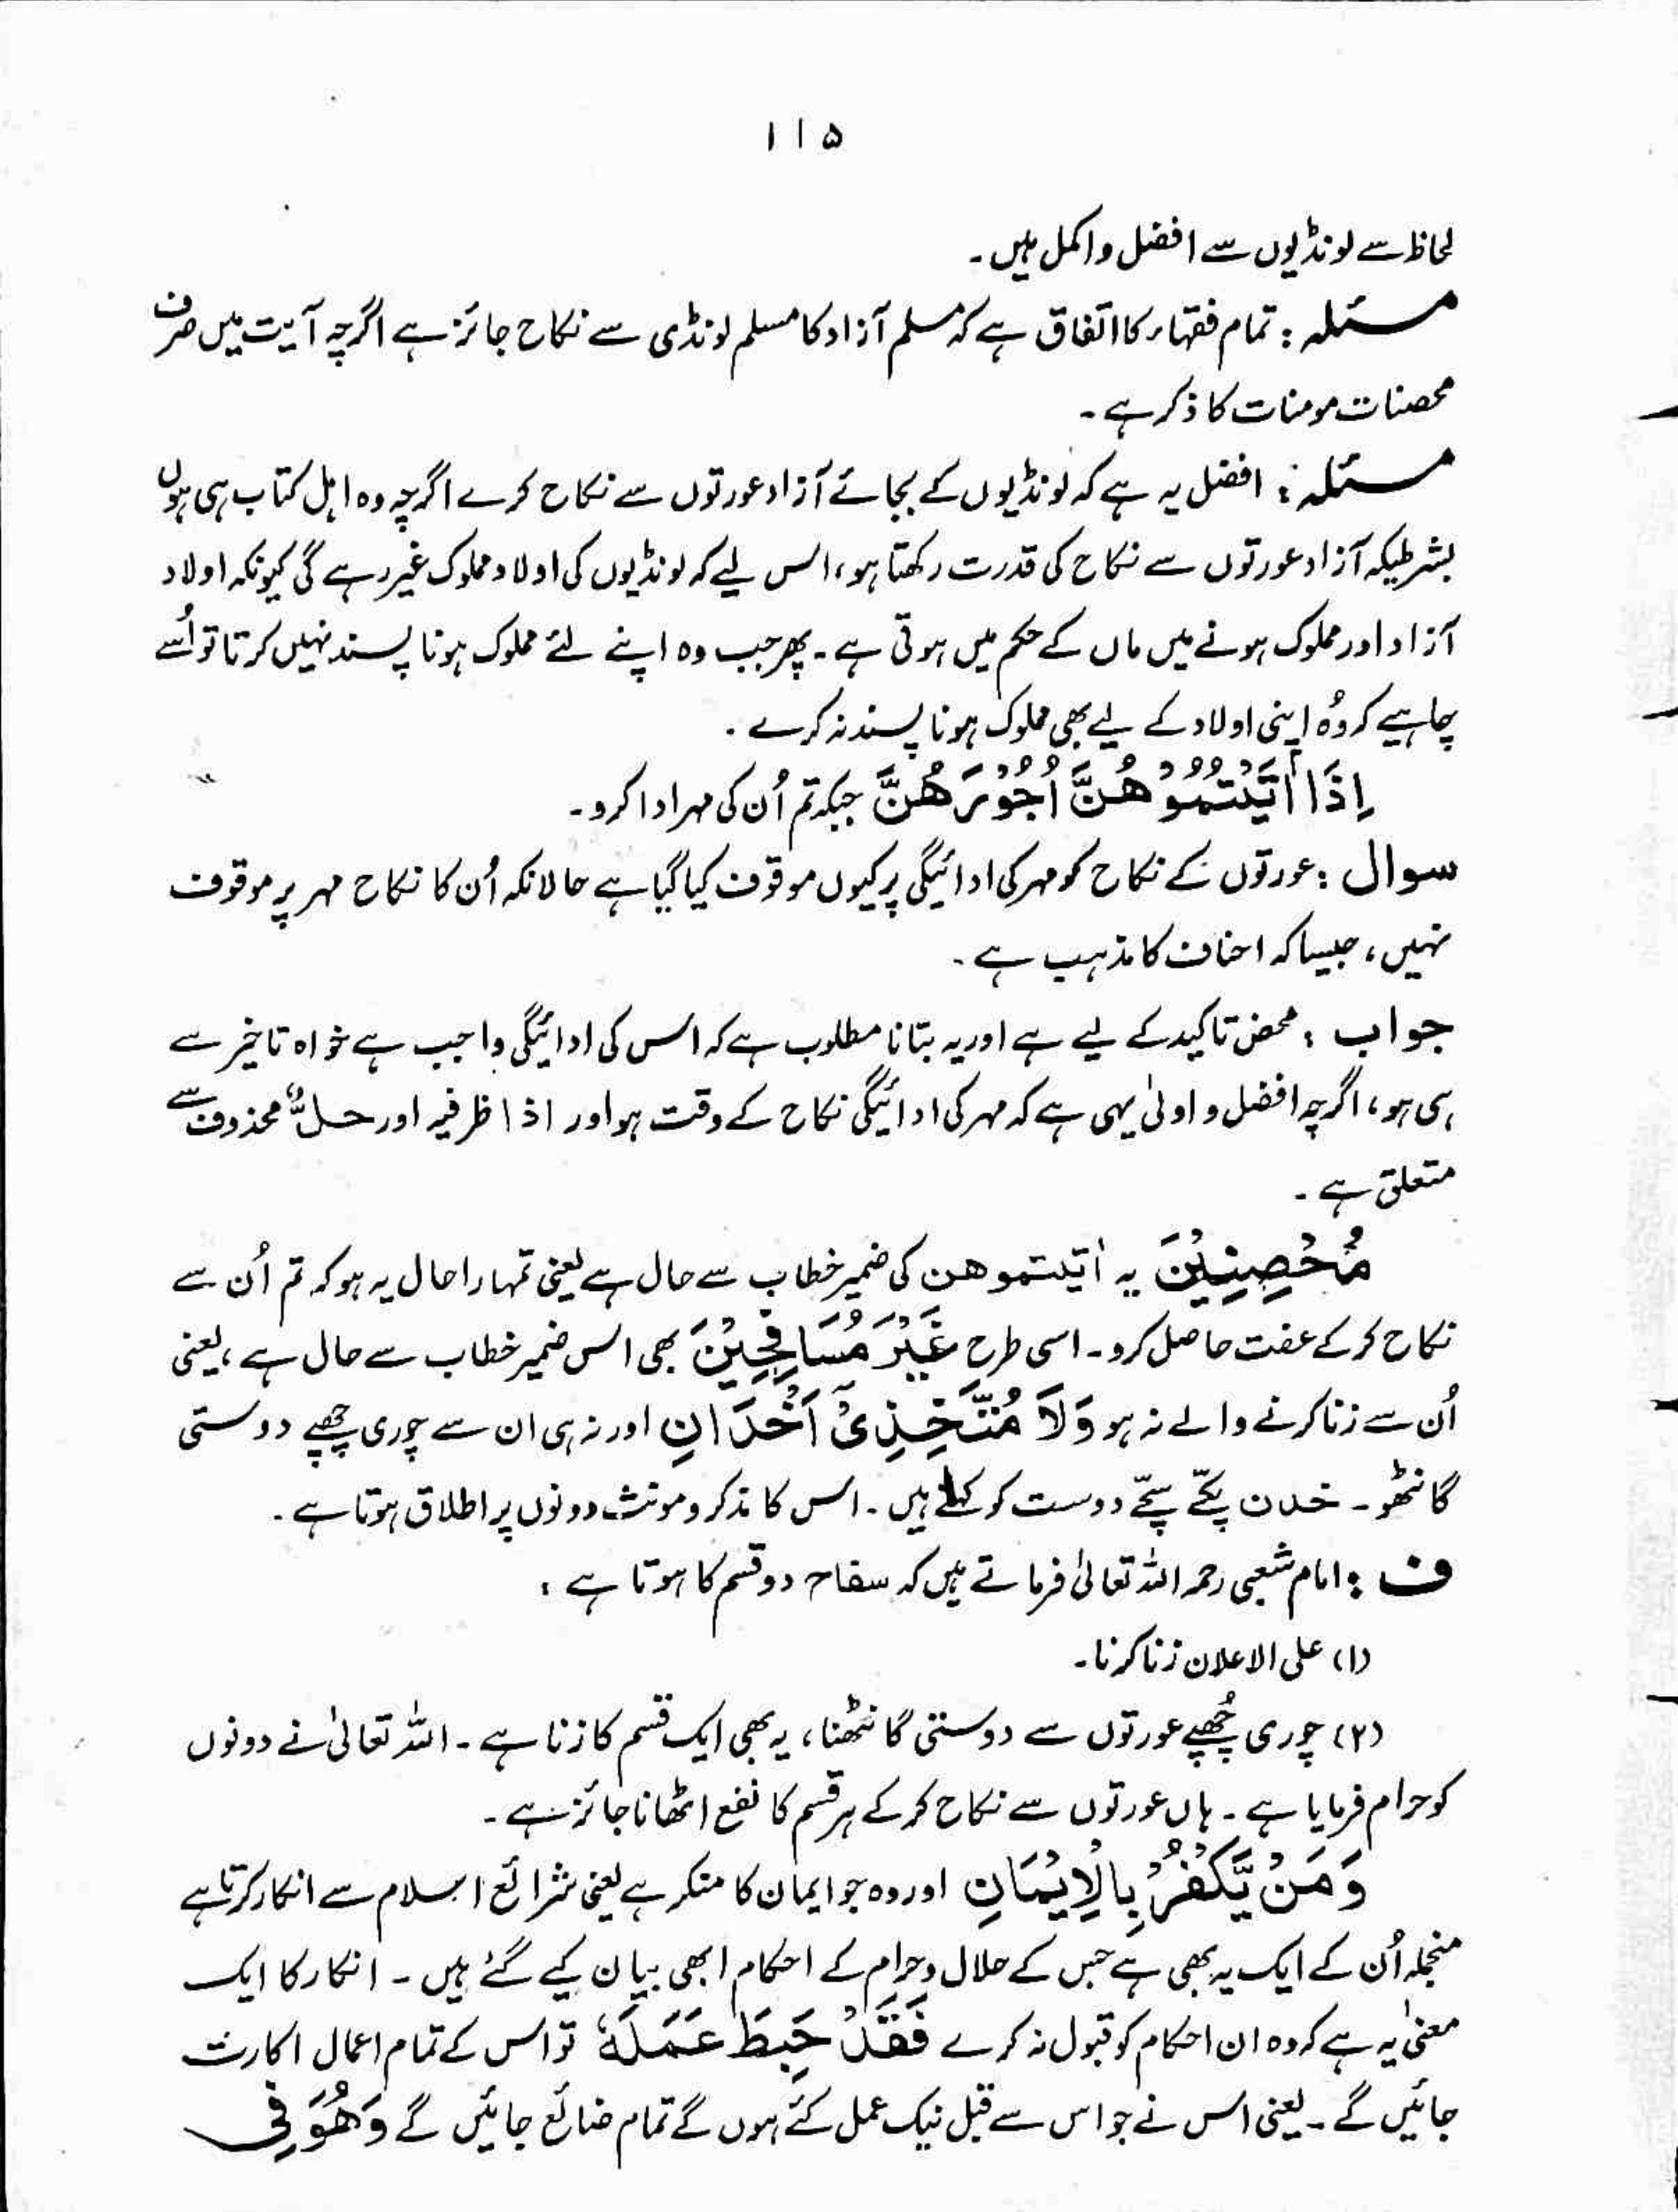 ۱۱۵
لحاظ سے لونڈیوں سے افضل و اکمل ہیں۔
مسئلہ : تمام فقہاء کا اتفاق ہے کہ مسلم آزاد کا مسلم لونڈی سے نکاح جائز ہے اگرچہ آیت میں صرف
محصنات مومنات کا ذکر ہے۔
مسئلہ : افضل یہ ہے کہ لونڈیوں کے بجائے آزاد عورتوں سے نکاح کرے اگرچہ وہ اہل کتاب ہی ہوں
بشرطیکہ آزاد عورتوں سے نکاح کی قدرت رکھتا ہو، اس لیے کہ لونڈیوں کی اولاد مملوک غیر رہے گی کیونکہ اولاد
آزاد اور مملوک ہونے میں ماں کے حکم میں ہوتی ہے۔ پھر جب وہ اپنے لئے مملوک ہونا پسند نہیں کرتا تو اُسے
چاہیے کہ وُہ اپنی اولاد کے لیے بھی مملوک ہونا پسند نہ کرے۔
اِذَا اٰتَيْتُمُوْهُنَّ اُجُوْرَهُنَّ جبکہ تم اُن کی مہر ادا کرو۔
سوال : عورتوں کے نکاح کو مہر کی ادائیگی پر کیوں موقوف کیا گیا ہے حالانکہ اُن کا نکاح مہر پر موقوف
نہیں، جیسا کہ احناف کا مذہب ہے۔
جواب : محض تاکید کے لیے ہے اور یہ بتانا مطلوب ہے کہ اس کی ادائیگی واجب ہے خواہ تاخیر سے
ہی ہو، اگرچہ افضل و اولیٰ یہی ہے کہ مہر کی ادائیگی نکاح کے وقت ہو اور اذا ظرفیہ اور حلٌّ محذوف سے
متعلق ہے۔
مُحْصِنِيْنَ یہ اٰتیتموھن کی ضمیر خطاب سے حال ہے یعنی تمہارا حال یہ ہو کہ تم اُن سے
نکاح کر کے عفت حاصل کرو۔ اسی طرح غَيْرَ مُسَافِحِيْنَ بھی اس ضمیر خطاب سے حال ہے، یعنی
اُن سے زنا کرنے والے نہ ہو وَلَا مُتَّخِذِیْٓ اَخْدَانٍ اور نہ ہی ان سے چوری چھپے دوستی
گانٹھو۔ خدن پکّے سچّے دوست کو کہتے ہیں۔ اس کا مذکر و مونث دونوں پر اطلاق ہوتا ہے۔
ف : امام شعبی رحمہ اللہ تعالیٰ فرماتے ہیں کہ سفاح دو قسم کا ہوتا ہے :
(۱) علی الاعلان زنا کرنا۔
(۲) چوری چُھپے عورتوں سے دوستی گانٹھنا، یہ بھی ایک قسم کا زنا ہے۔ اللہ تعالیٰ نے دونوں
کو حرام فرمایا ہے۔ ہاں عورتوں سے نکاح کر کے ہر قسم کا نفع اٹھانا جائز ہے۔
وَمَنْ يَّكْفُرْ بِالْاِيْمَانِ اور وہ جو ایمان کا منکر ہے یعنی شرائع اسلام سے انکار کرتا ہے
منجملہ اُن کے ایک یہ بھی ہے جس کے حلال و حرام کے احکام ابھی بیان کیے گئے ہیں۔ انکار کا ایک
معنیٰ یہ ہے کہ وہ ان احکام کو قبول نہ کرے فَقَدْ حَبِطَ عَمَلُهٗ تو اس کے تمام اعمال اکارت
جائیں گے۔ یعنی اس نے جو اس سے قبل نیک عمل کئے ہوں گے تمام ضائع جائیں گے وَهُوَ فِی